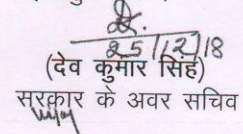 25/12/18
(देव कुमार सिंह)
सरकार के अवर सचिव